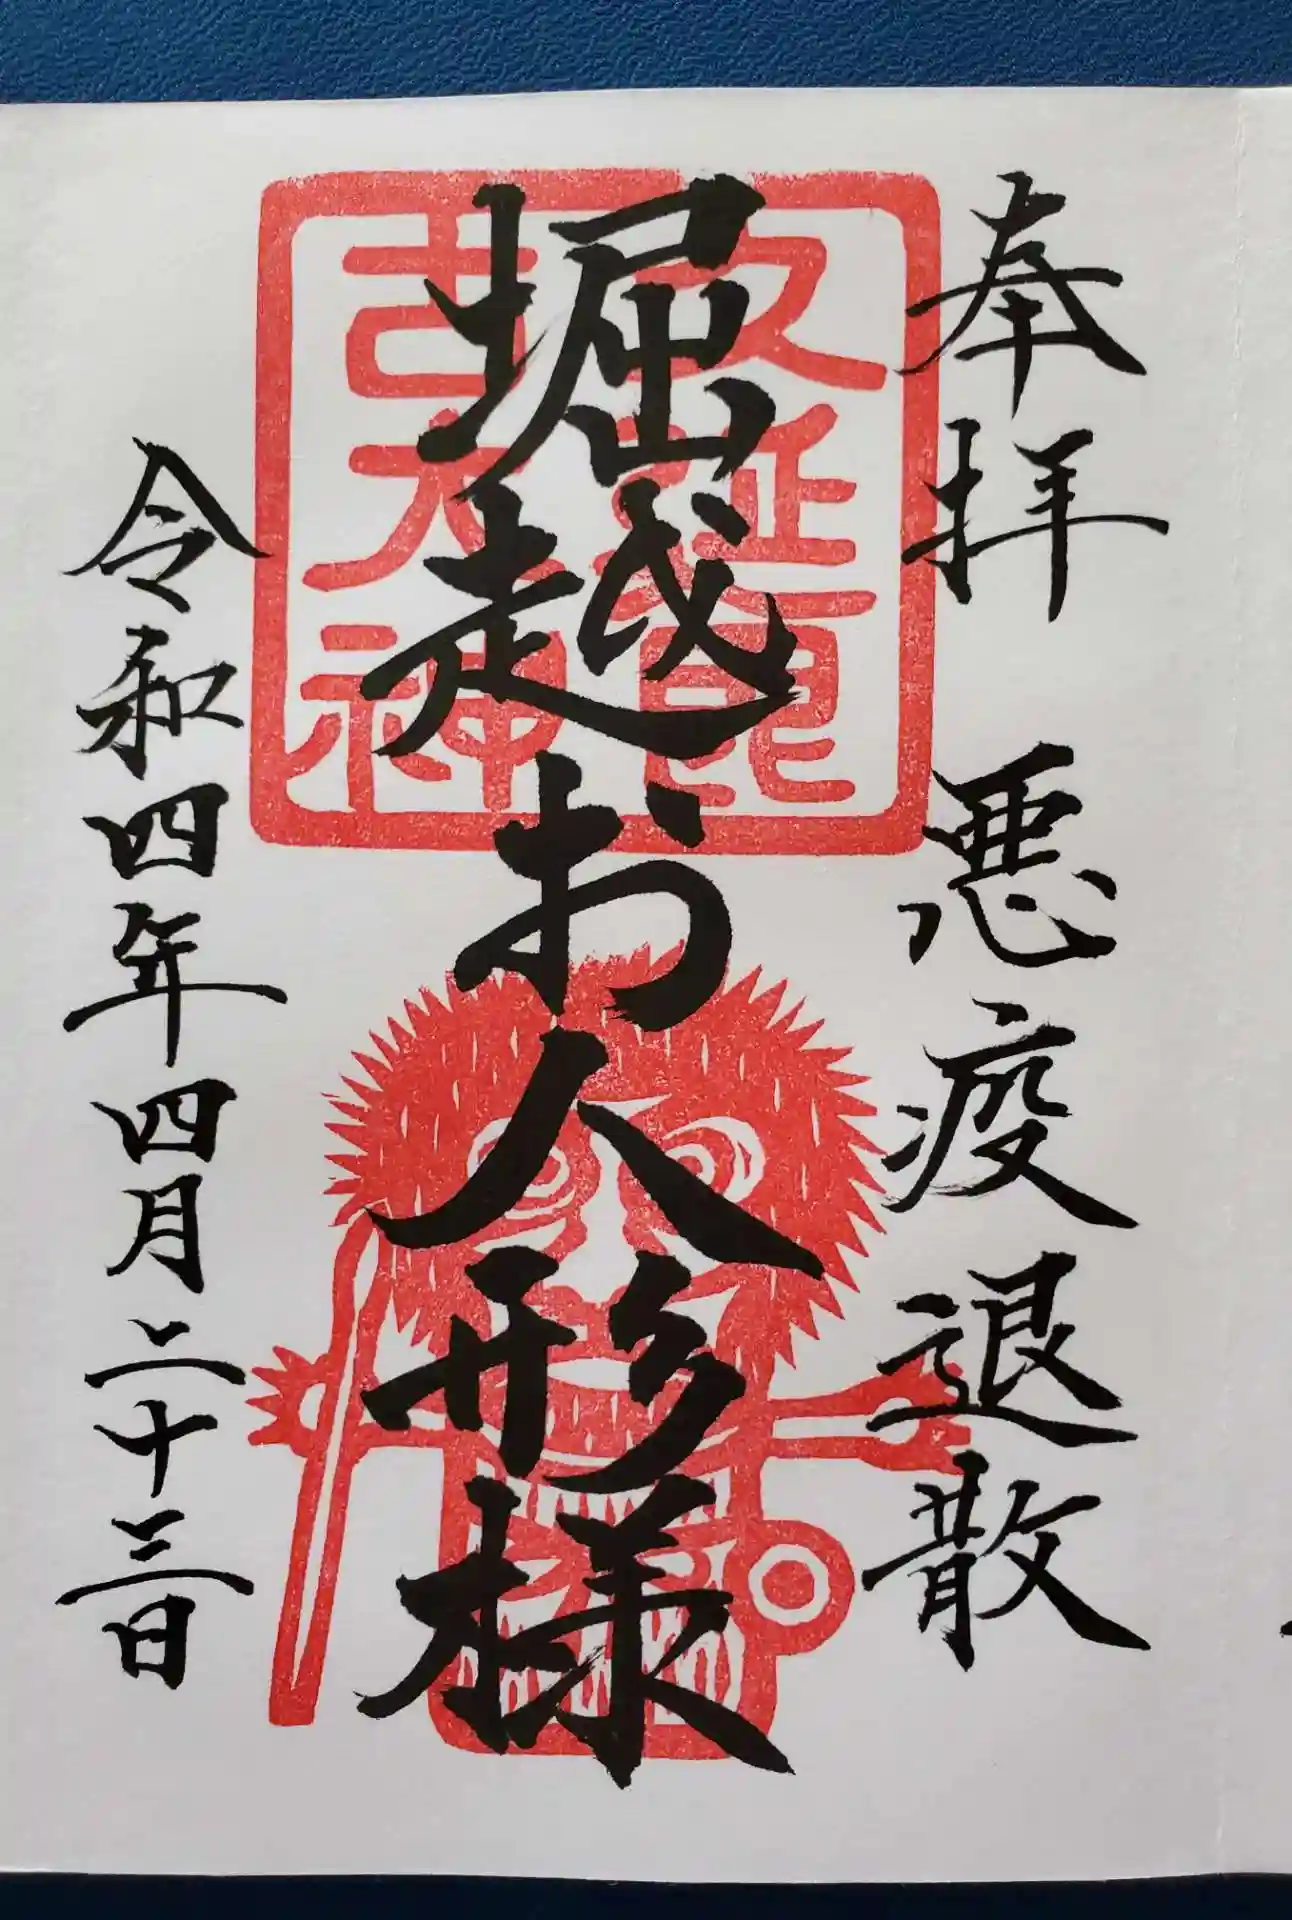 奉拝 悪疫退散
堀越お人形様
令和四年四月二十三日